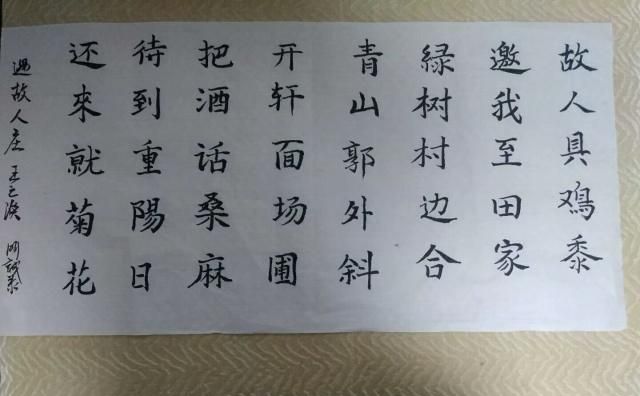 故人具鸡黍
邀我至田家
緑树村边合
青山郭外斜
开轩面场圃
把酒话桑麻
待到重陽日
还來就菊花
过故人庄 王之涣